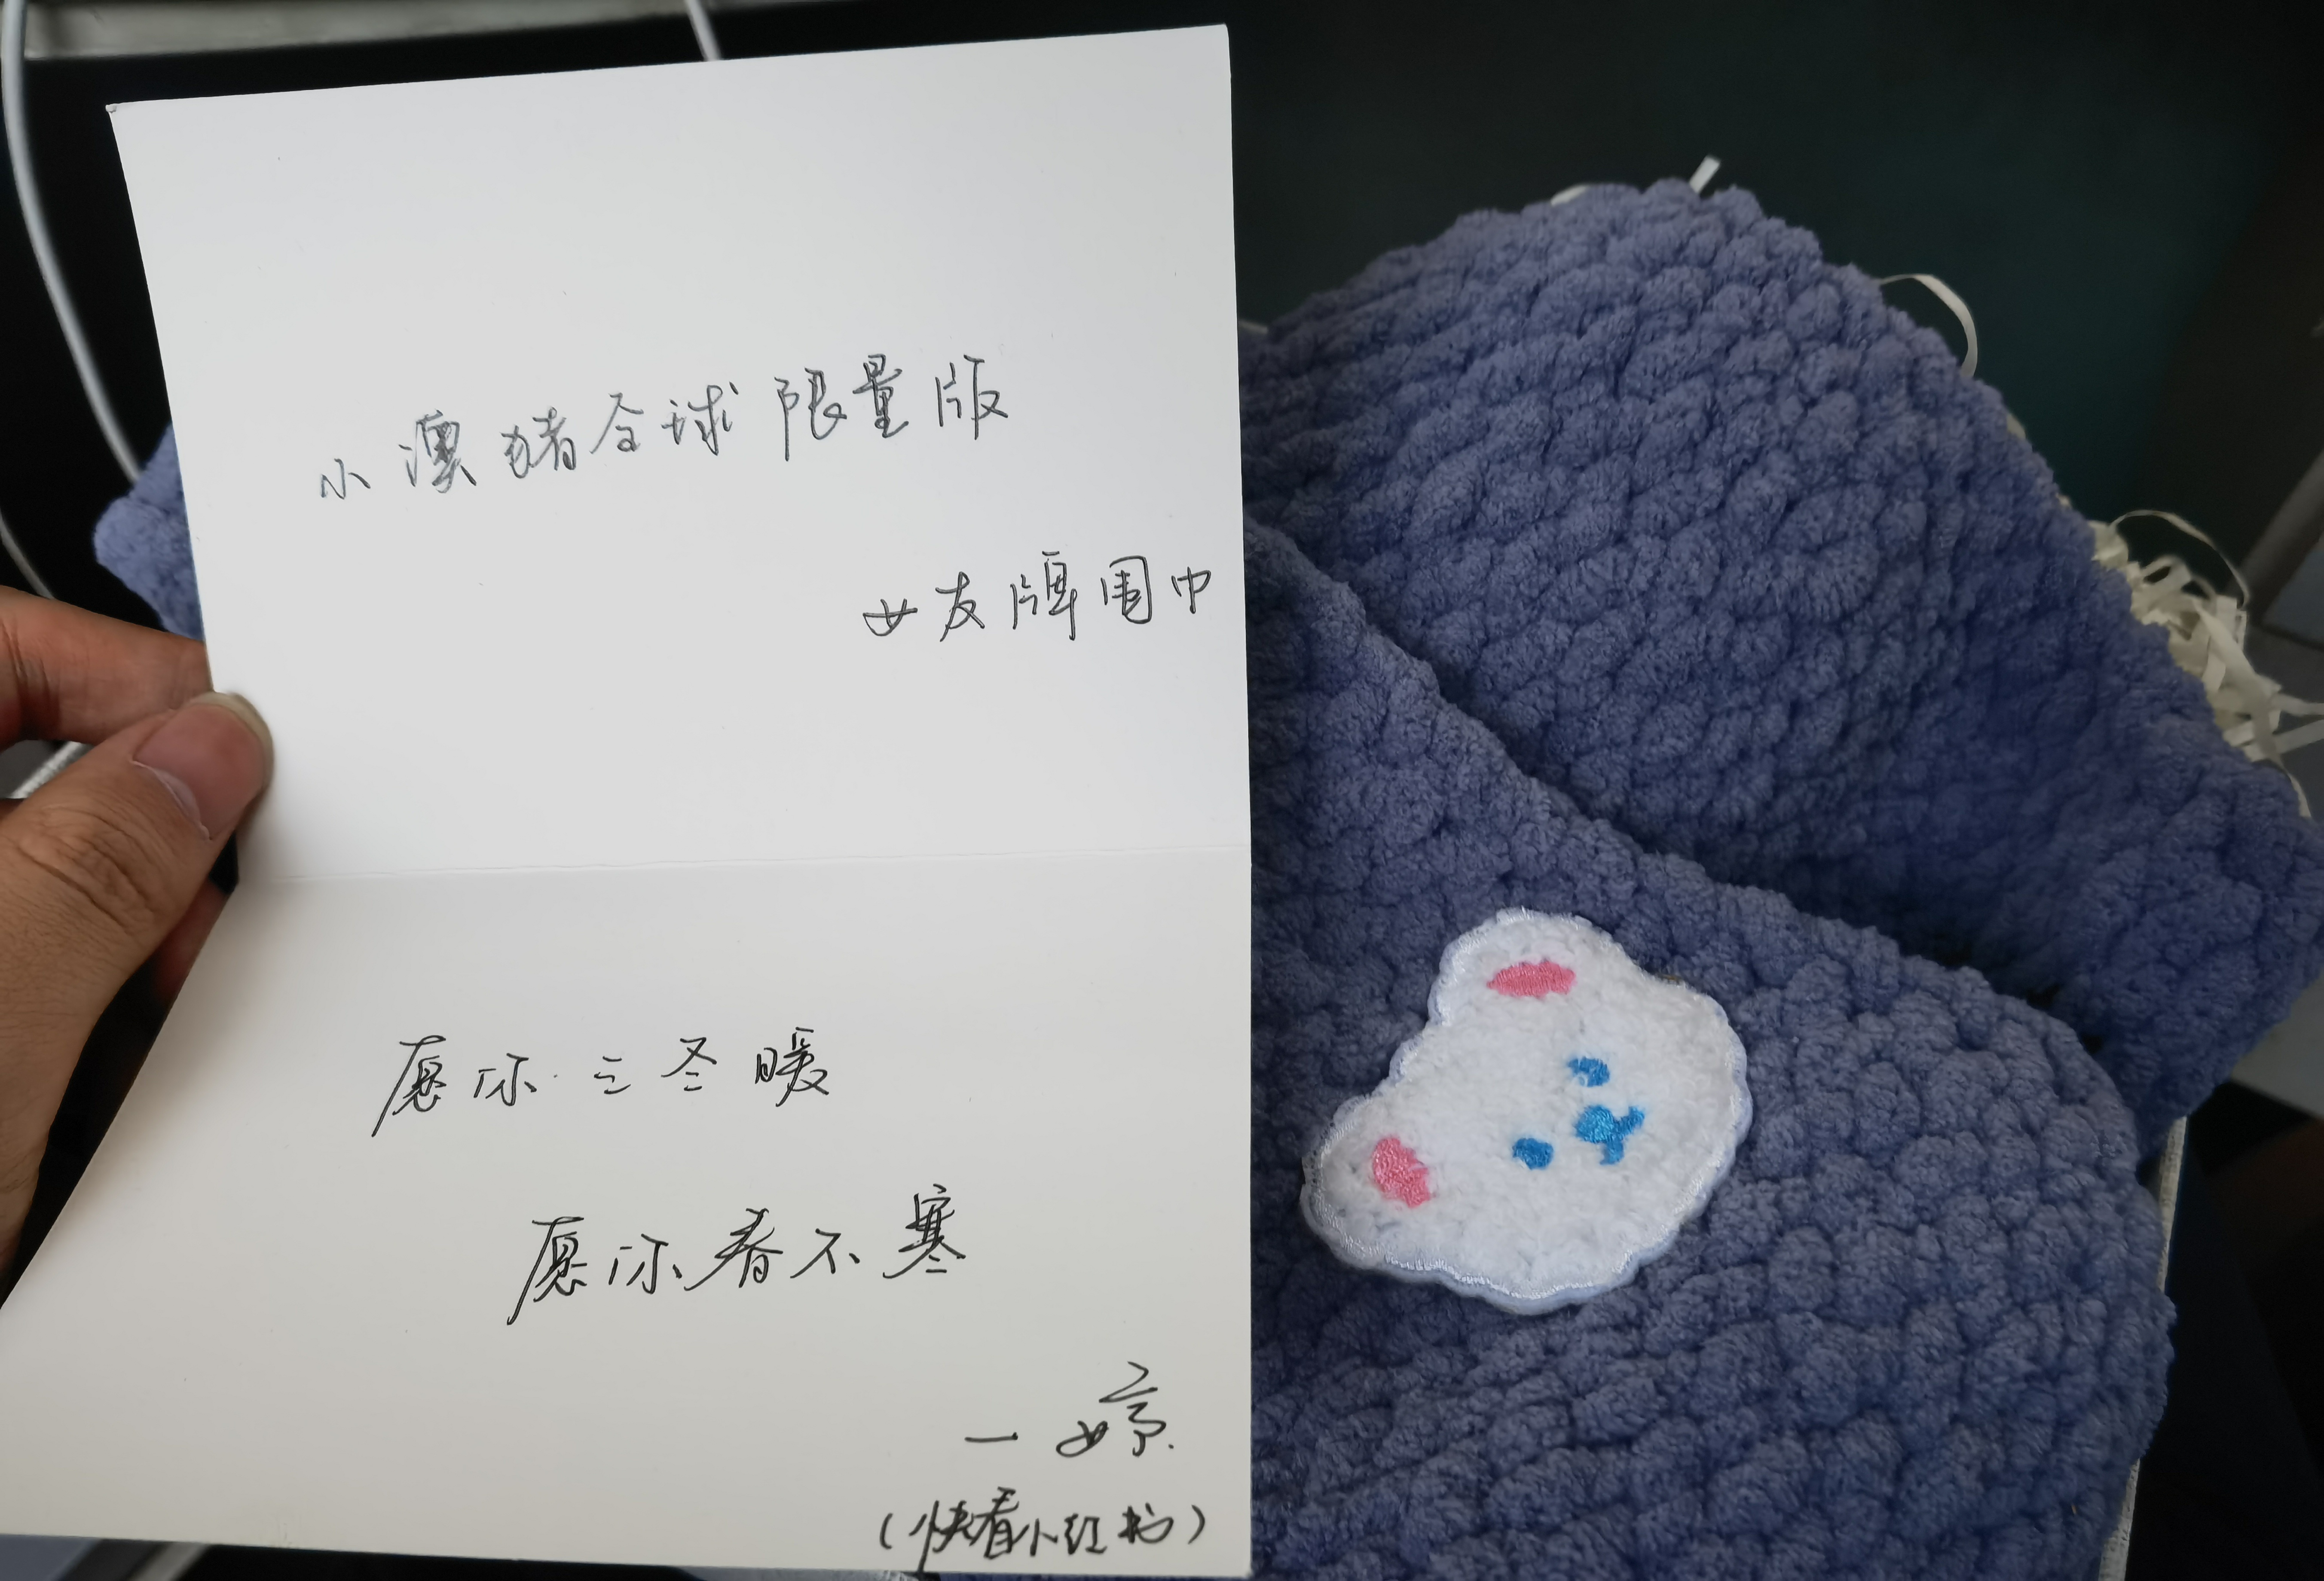 小澳猪全球限量版
女友牌围巾
愿你三冬暖
愿你春不寒
一婷
(快看小红书)